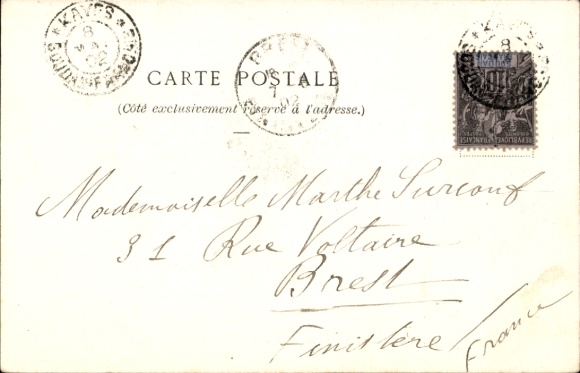 KAYES
8
02
SOUDAN FRANÇAIS
CARTE POSTALE
(Côté exclusivement réservé à l'adresse.)
BREST
7
02
KAYES
8
10
RÉPUBLIQUE FRANÇAISE
Mademoiselle Marthe Surcouf
31 Rue Voltaire
Brest
Finistère
France